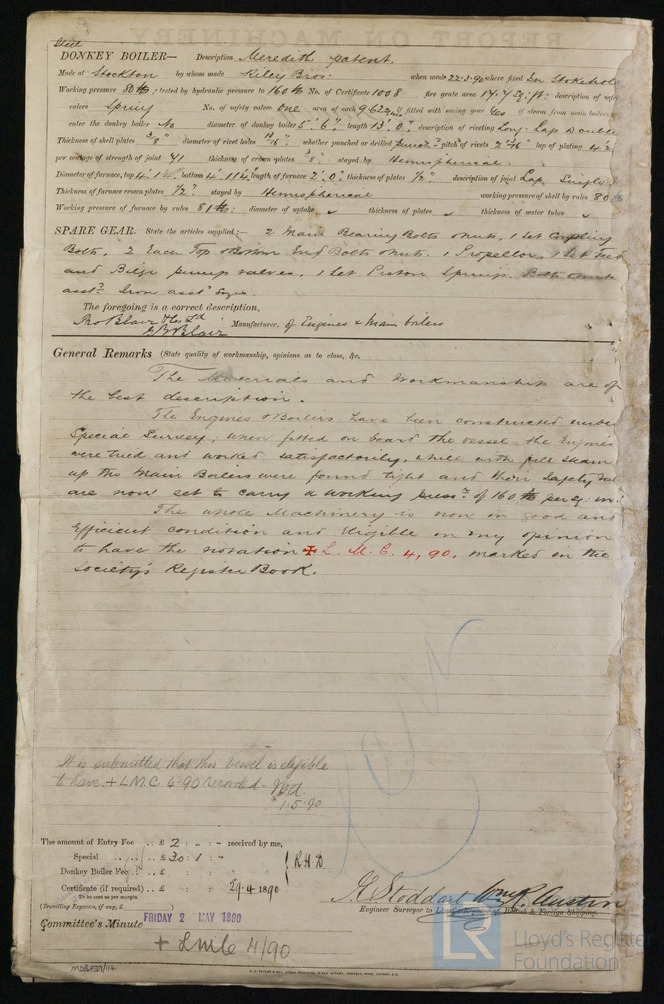 Steel
DONKEY BOILER— Description Meredith patent.
Made at Stockton by whom made Riley Bros: when made 22-3-90 where fixed In Stokehold
Working pressure 80 lb tested by hydraulic pressure to 160 lb No. of Certificate 1008 fire grate area 17.7 Sq: ft: description of safety
valves Spring No. of safety valves One area of each 9.62 if fitted with easing gear Yes if steam from main boilers
enter the donkey boiler No diameter of donkey boiler 5'. 6" length 13'. 0" description of riveting Long: Lap Double
Thickness of shell plates 3/8" diameter of rivet holes 13/16" whether punched or drilled pitch of rivets lap of plating 4 1/2
per centage of strength of joint 71 thickness of crown plates 3/8" stayed by Hemispherical
Diameter of furnace, top bottom length of furnace 2'. 0" thickness of plates 1/2" description of joint Lap Single
Thickness of furnace crown plates 1/2" stayed by Hemispherical working pressure of shell by rules 80
Working pressure of furnace by rules 81 lb: diameter of uptake thickness of plates thickness of water tubes
SPARE GEAR. State the articles supplied:— 2 Main Bearing Bolts & Nuts, 1 Set Coupling
Bolts, 2 Each Top & Bottom End Bolts & Nuts. 1 Propellor, 1 Set Feed
and Bilge pump valves, 1 Set Piston Springs. Bolts
asstd Iron asstd Sizes.
The foregoing is a correct description,
Blair & Co Ld
Blair Manufacturer. of Engines & Main boilers
General Remarks (State quality of workmanship, opinions as to class, &c.
The Materials and Workmanship are of
the best description.
The Engines & Boilers have been constructed under
Special Survey, when fitted on board the vessel the Engines
were tried and worked satisfactorily, while with full steam
up the Main Boilers were found tight and their Safety Val
are now set to carry a working press: of 160 lb per sq. in.
The whole Machinery is now in good and
Efficient condition and Eligible in my opinion
to have the notation ✠ L. M. C. 4, 90. marked in the
Society's Register Book.
It is submitted that this vessel is eligible
to have + L.M.C. 4-90 recorded.
1.5.90
The amount of Entry Fee .. £ 2 : - : - received by me,
Special .. £ 30 : 1 : -
R.H.D
Donkey Boiler Fee .. £ : :
Certificate (if required) .. £ : : 29.4.1890
To be sent as per margin.
(Travelling Expenses, if any, £ )
Stoddart Wm R. Austin
Engineer Surveyor to Lloyd's Register of British & Foreign Shipping.
Committee's Minute FRIDAY 2 MAY 1890
+ LMC 4/90
LR
Lloyd's Register
Foundation